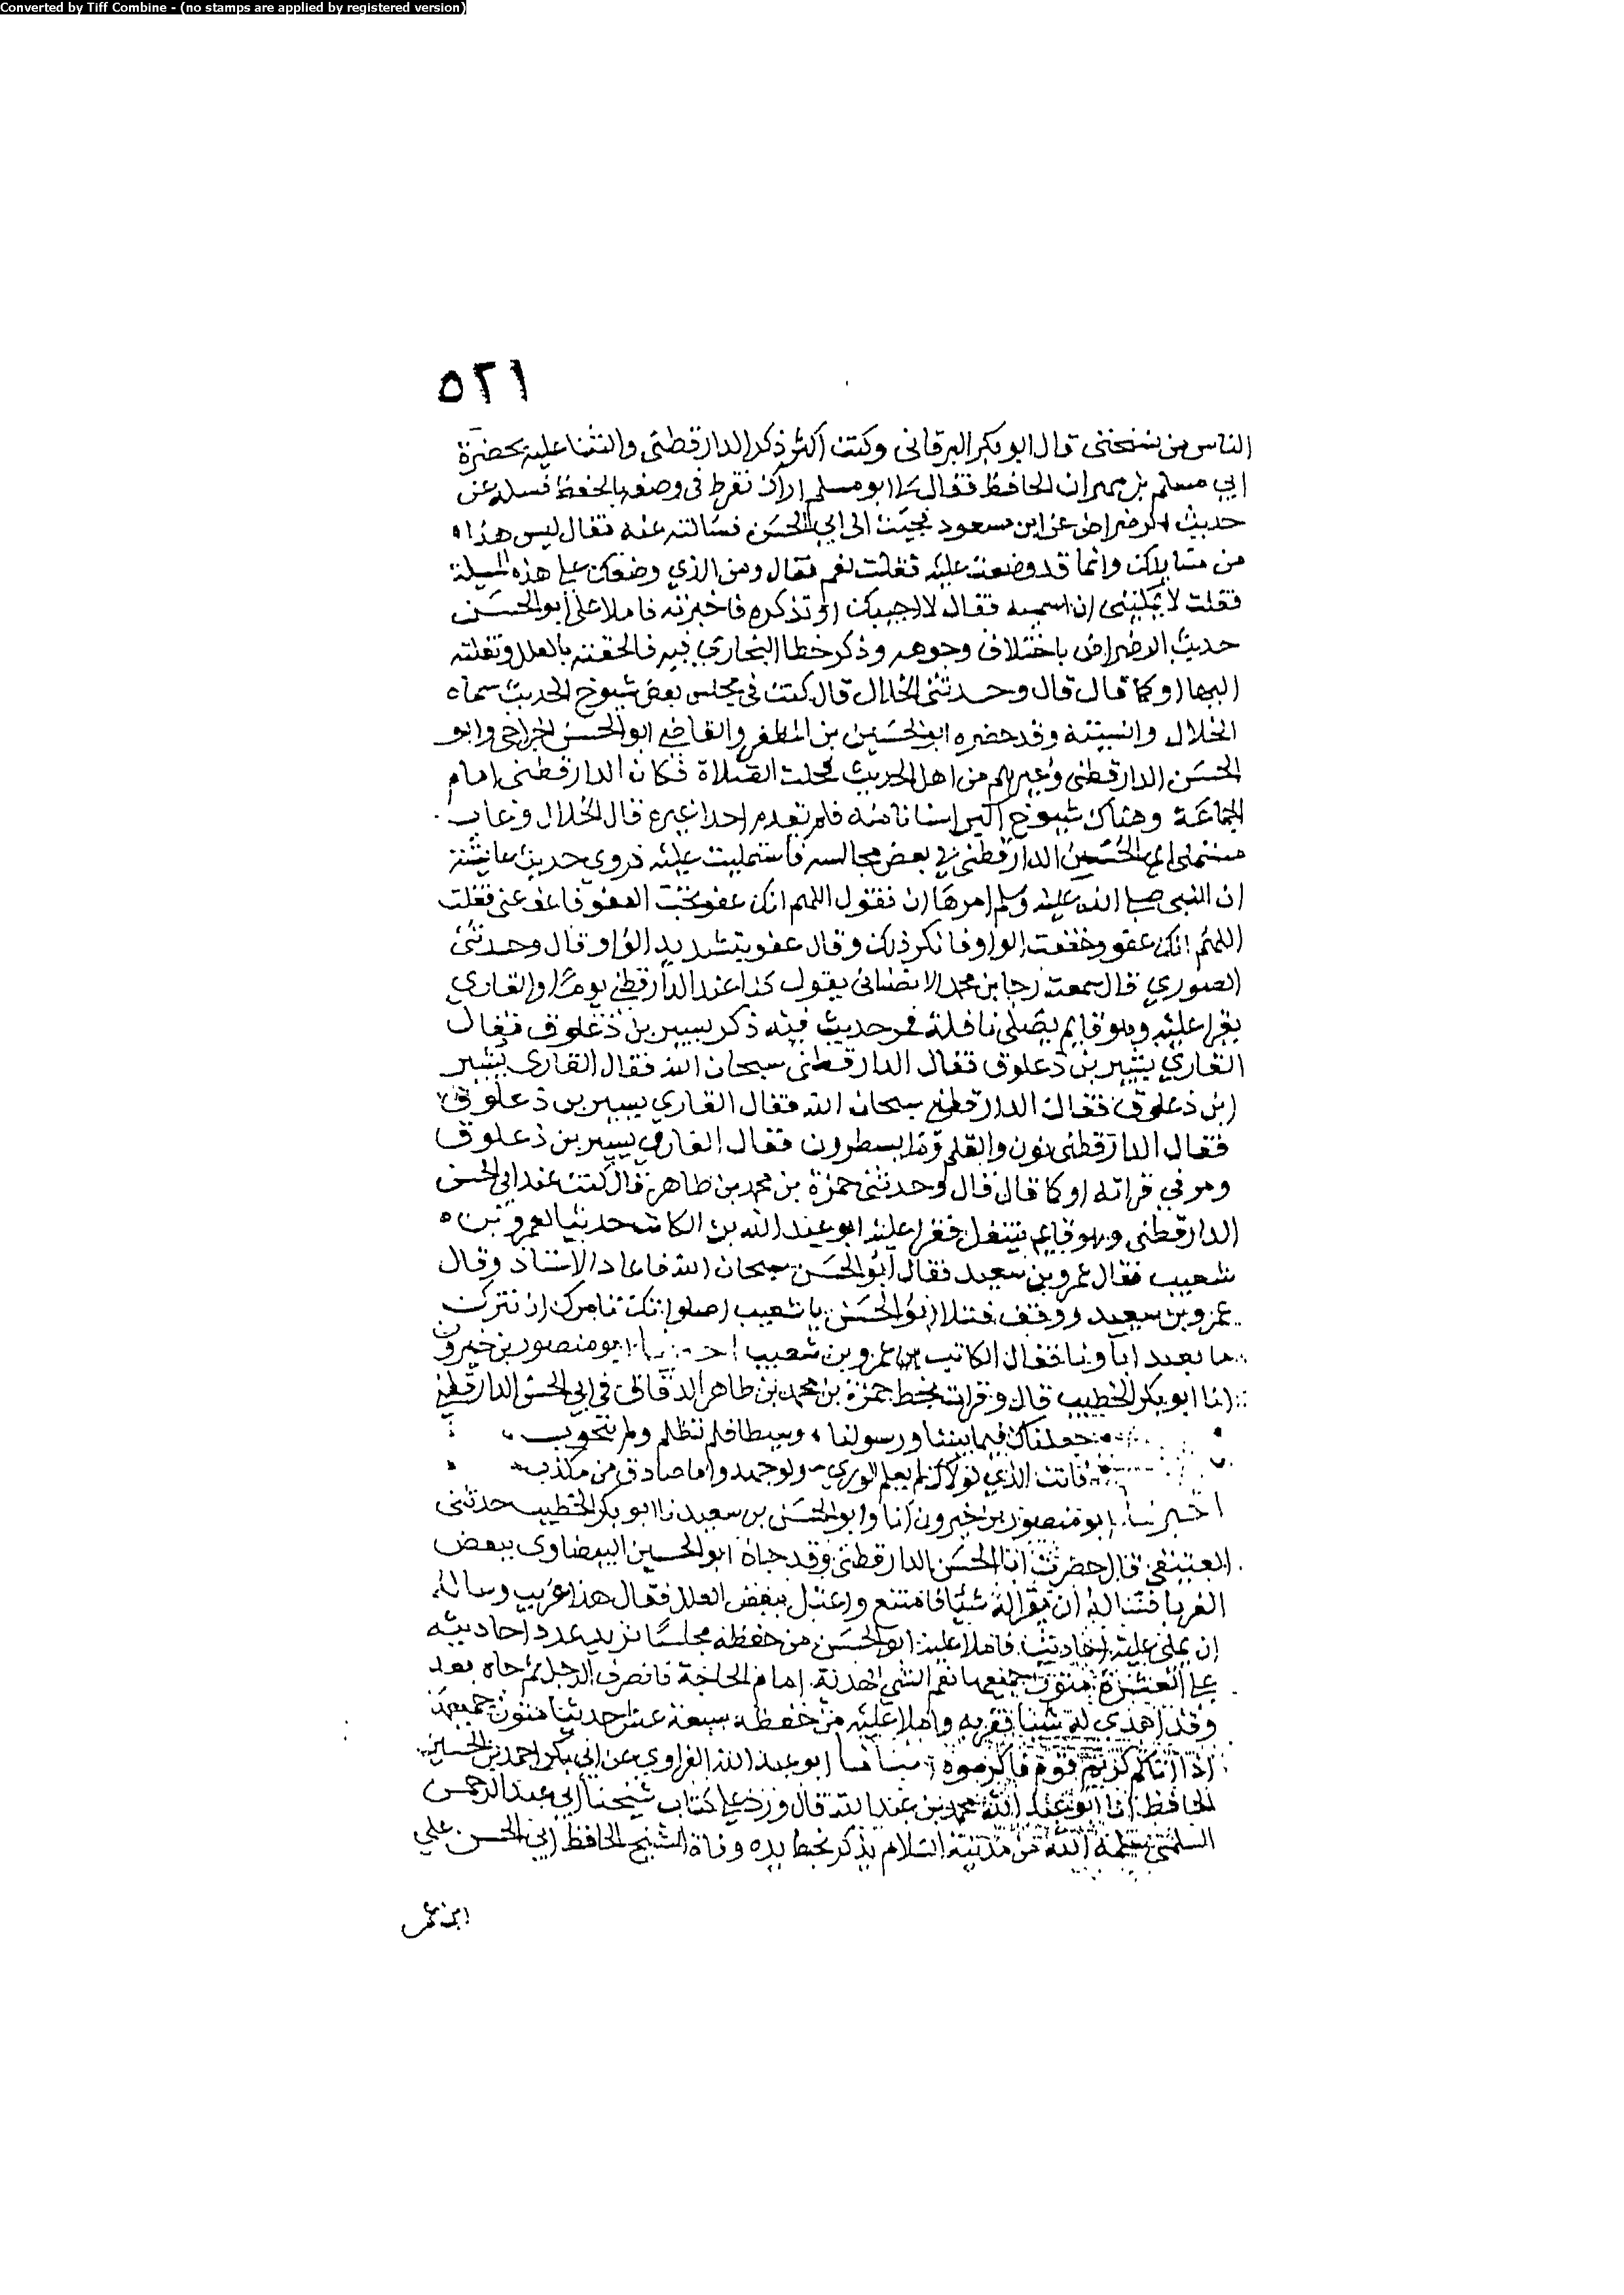 Converted by Tiff Combine - (no stamps are applied by registered version)
٥٢١
الناس من نسختى قال ابو بكر البرقانى وكنت اكثر ذكر الدارقطنى والثنا عليه بحضرة
ابي مسلم بن مهران الحافظ فقال لي ابو مسلم اراك تفرط فى وصفه بالحفظ فسله عن
حديث الرضراض عن ابن مسعود فجيت الى ابي الحسن فسالته عنه فقال ليس هذا
من مسايلك وانما قد وضعت عليه فقلت نعم فقال ومن الذي وضعك على هذه المسلة
فقلت لا يمكننى ان اسميه فقال لا اجيبك او تذكره فاخبرته فاملا على ابو الحسن
حديث الرضراض باختلاف وجوهه وذكر خطا البخاري فيه فالحقته بالعلل ونقلته
اليها او كما قال قال وحدثنى الخلال قال كنت فى مجلس بعض شيوخ الحديث سماه
الخلال وانسيته وقد حضره ابو الحسين بن المظفر والقاضي ابو الحسن الجراحي وابو
الحسن الدارقطنى وغيرهم من اهل الحديث فحلت الصلاة فكان الدارقطنى امام
الجماعة وهناك شيوخ اكبر اسنانا منه فلم يقدم احدا غيره قال الخلال وغاب
مستملى ابي الحسن الدارقطنى في بعض مجالسه فاستمليت عليه فروى حديث عايشة
ان النبى صلى الله عليه وسلم امرها ان تقول اللهم انك عفو تحب العفو فاعف عنى فقلت
اللهم انك عفو وخففت الواو فانكر ذلك وقال عفو بتشديد الواو قال وحدثنى
الصوري قال سمعت رجا بن محمد الانصنائى يقول كنا عند الدارقطني يوما والقاري
يقرا عليه وهو قايم يصلى نافلة فمر حديث فيه ذكر نسير بن ذعلوق فقال
القاري بشير بن ذعلوق فقال الدارقطنى سبحان الله فقال القاري بشير
ابن ذعلوق فقال الدارقطني سبحان الله فقال القاري يسير بن ذعلوق
فقال الدارقطنى نون والقلم وما يسطرون فقال القاري نسير بن ذعلوق
ومر في قراته او كما قال قال وحدثنى حمزة بن محمد بن طاهر قال كنت عند ابي الحسن
الدارقطنى وهو قايم يتنفل فقرا عليه ابو عبد الله بن الكاتب حديثا لعمرو بن
شعيب فقال عمرو بن سعيد فقال ابو الحسن سبحان الله فاعاد الاسناد وقال
عمرو بن سعيد ووقف فتلا ابو الحسن يا شعيب اصلواتك تامرك ان نترك
ما يعبد اباونا فقال الكاتب عمرو بن شعيب ابو منصور بن خيرون
انا ابو بكر الخطيب قال وقرات بخط حمزة بن محمد بن طاهر الدقاق فى ابي الحسن الدارقطني
جعلناك فيما بيننا ورسولنا وسيطا فلم تظلم ولم تتحوب
فانت الذي لولاك لم يعلم الوري ولو جهدوا ما صادق من مكذب
اخبرنا ابو منصور بن خيرون انا وابو الحسن بن سعيد نا ابو بكر الخطيب حدثنى
العتيقي قال حضرت ابا الحسن الدارقطنى وقد جاه ابو الحسين البيضاوى ببعض
الغربا فساله ان يقرا له شيا فامتنع واعتل ببعض العلل فقال هذا غريب وساله
ان يملى عليه احاديث فاملا عليه ابو الحسن من حفظه مجلسا تزيد عدد احاديثه
على العشرة متون جميعها نعم الشي الهدية امام الحاجة فانصرف الرجل ثم جاه بعد
وقد اهدى له شيا فقربه واملا عليه من حفظه سبعة عشر حديثا متون جميعها
اذا اتاكم كريم قوم فاكرموه انبانا ابو عبد الله الفراوي عن ابي بكر احمد بن الحسين
الحافظ انا ابو عبد الله محمد بن عبد الله قال ورد على كتاب شيخنا ابي عبد الرحمن
السلمي سلمه الله من مدينة السلام يذكر بخط يده وفاة الشيخ الحافظ ابي الحسن علي
ابن عمر